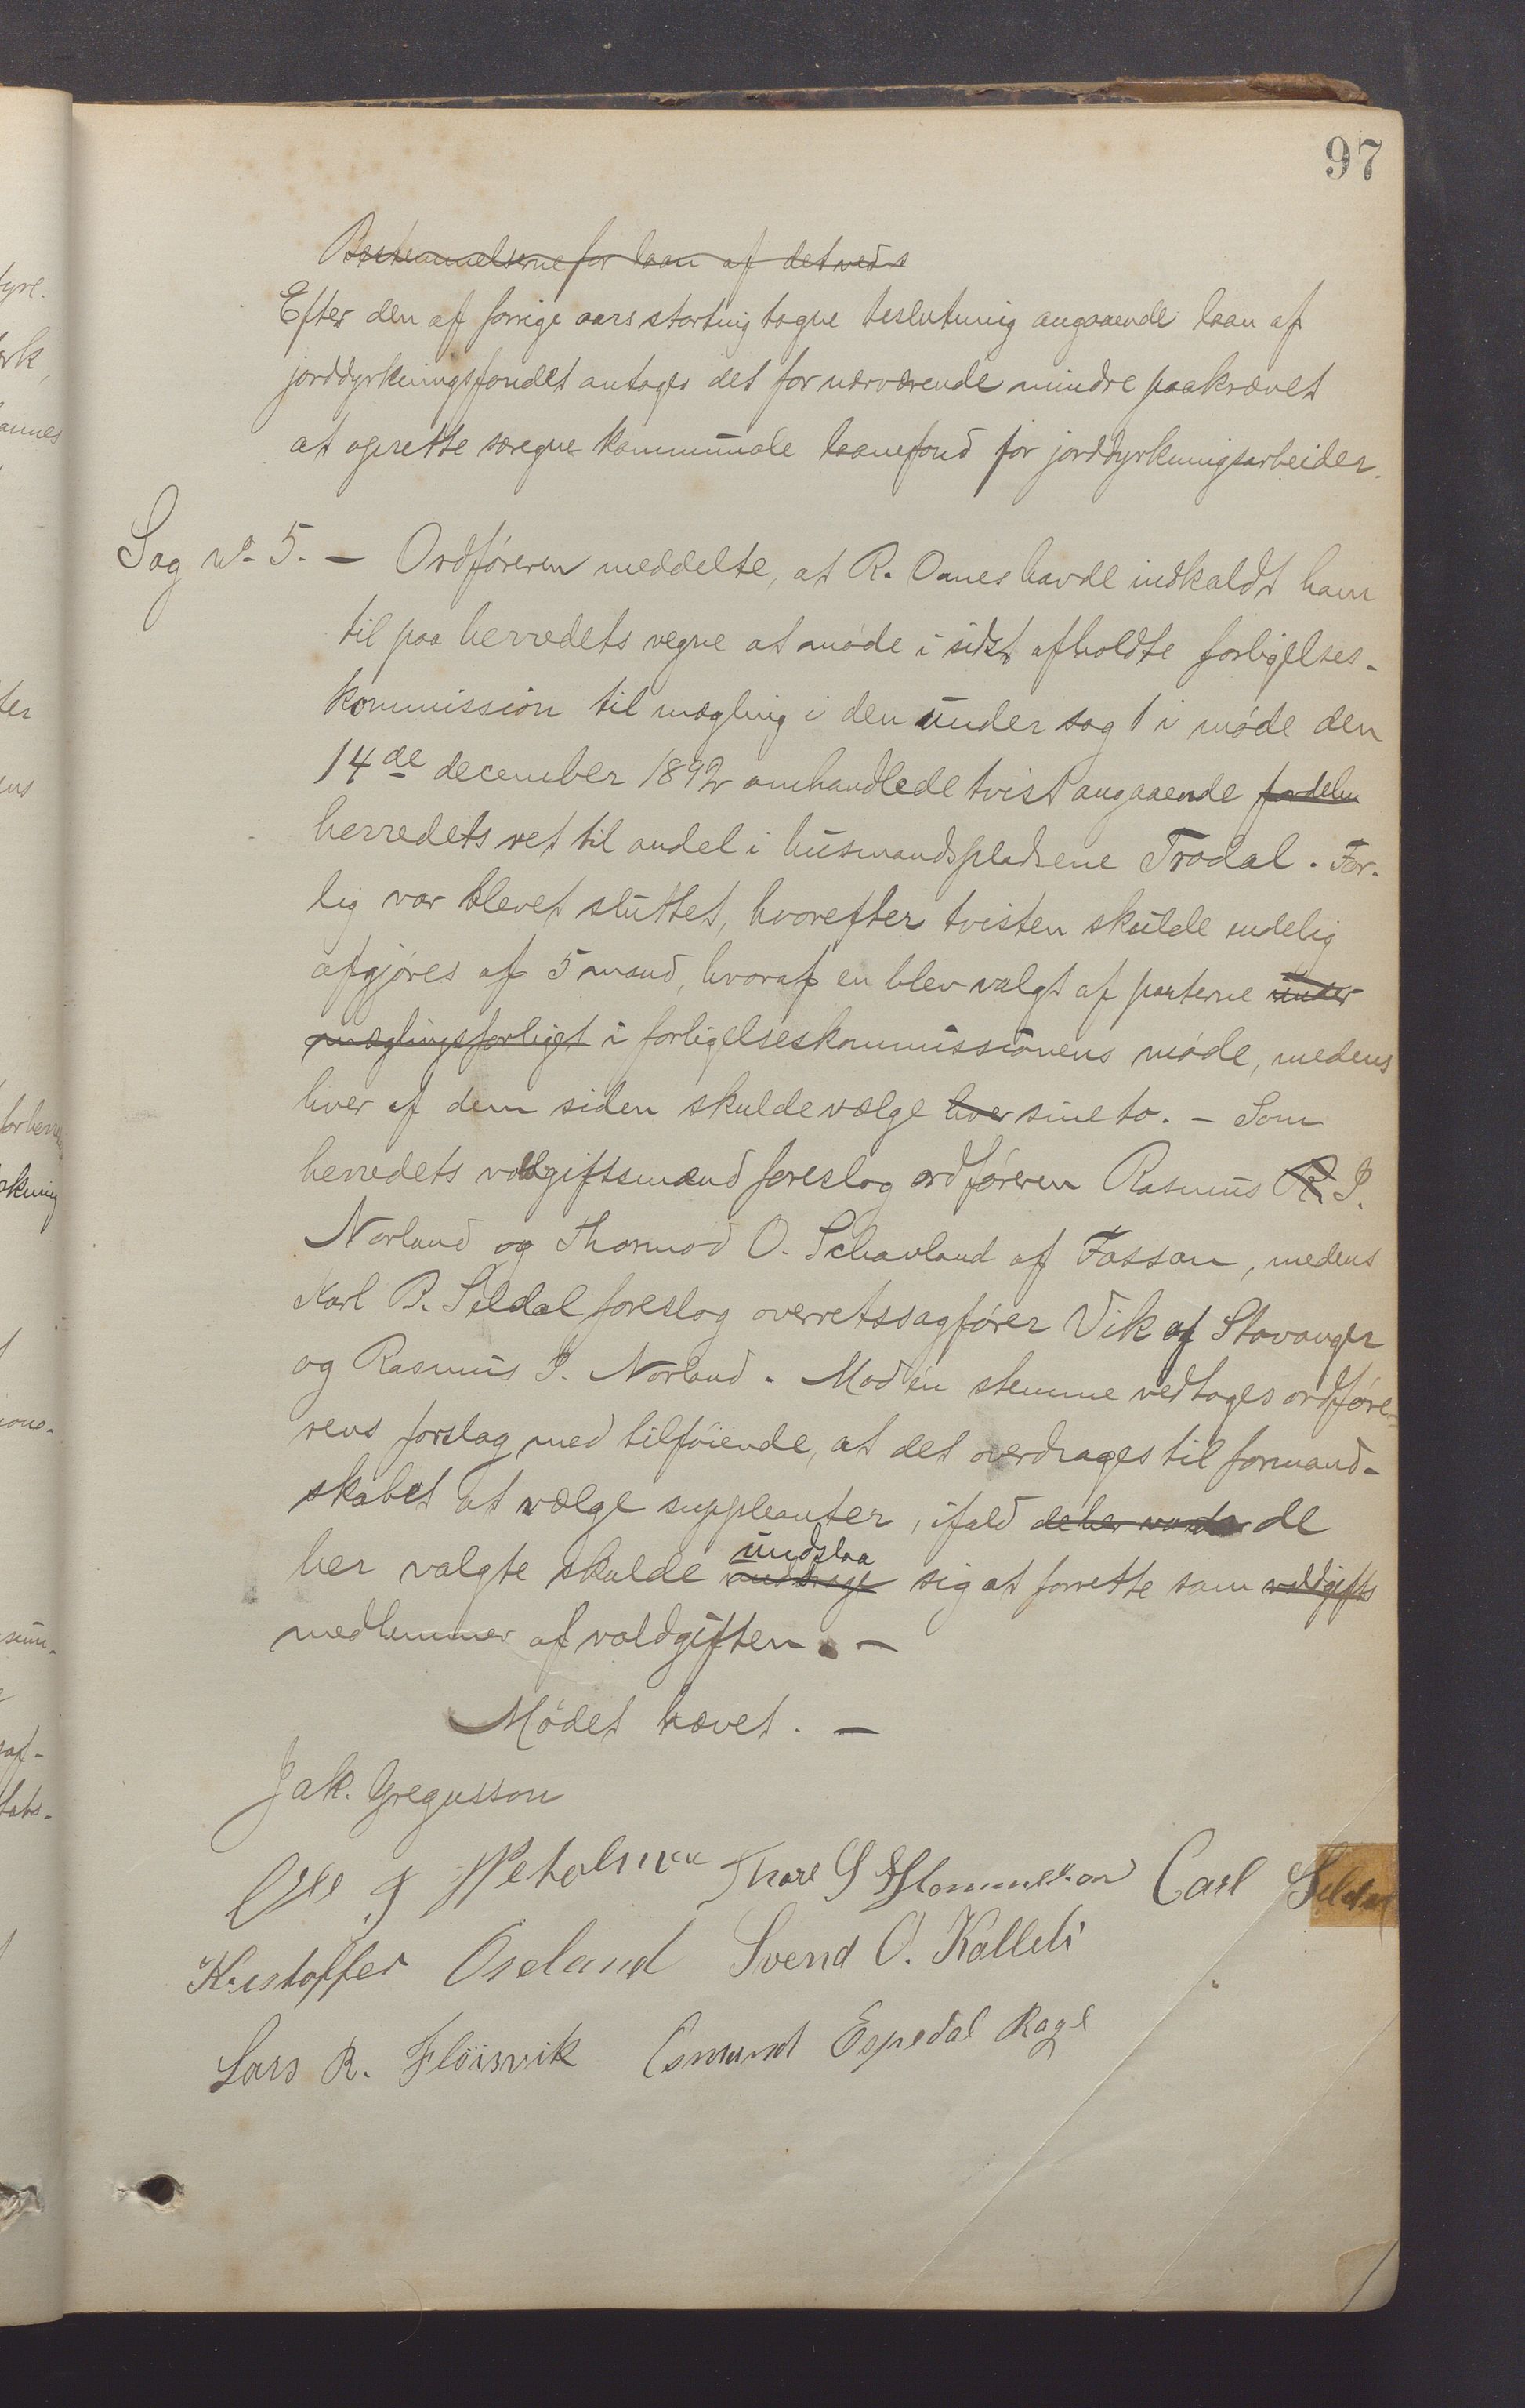 97
Bestemmelserne for laan af det ved s
Efter den af forrige aars storting tagne beslutning angaaende laan af
jorddyrkningsfondet antages det for nærværende mindre paakrævet
at oprette særegne kommunale laanefond for jorddyrkningsarbeider.
Sag No 5. - Ordføreren meddelte, at R. Oanes havde indkaldt ham
til paa herredets vegne at møde i sidst afholdte forligelses-
kommission til mægling i den under sag 1 i møde den
14de december 1892 omhandlede tvist angaaende fordelen
herredets ret til andel i husmandspladsene Trodal. For-
lig var blevet sluttet, hvorefter tvisten skulde endelig
afgjøres af 5 mand, hvoraf en blev valgt af parterne under
mæglingsforliget i forligelseskommissionens møde, medens
hver af dem siden skulde vælge hver sine to. - Som
herredets voldgiftsmænd foreslog ordføreren Rasmus R. I.
Norland og Thormod O. Schavland af Fossan, medens
Karl P. Seldal foreslog overretssagfører Vik af Stavanger
og Rasmus I. Norland. Mod én stemme vedtages ordføre-
rens forslag med tilføiende, at det overdrages til formand-
skabet at vælge suppleanter, ifald de her de
undslaa
her valgte skulde unddrage sig at forrette som voldgifts
medlemmer af voldgiften. -
Mødet hævet. -
Jak. Gregusson
Thore S Carl Seldal
Kristoffer Öseland Svend O. Kalleli
Lars R. Flöisvik Osmund Espedal Rage